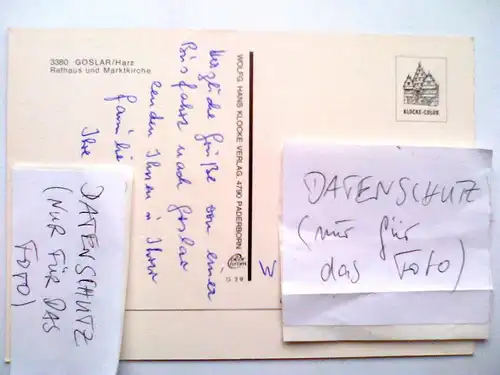 3380 GOSLAR/Harz
Rathaus und Marktkirche
Herzliche Grüße von einer
Busfahrt nach Goslar
senden Ihnen u Ihrer
Familie
Ihre
WOLFG. HANS KLOCKE VERLAG, 4790 PADERBORN
G 29
KLOCKE-COLOR
DATENSCHUTZ
(NUR FÜR DAS
FOTO)
DATENSCHUTZ
(nur für
das FOTO)